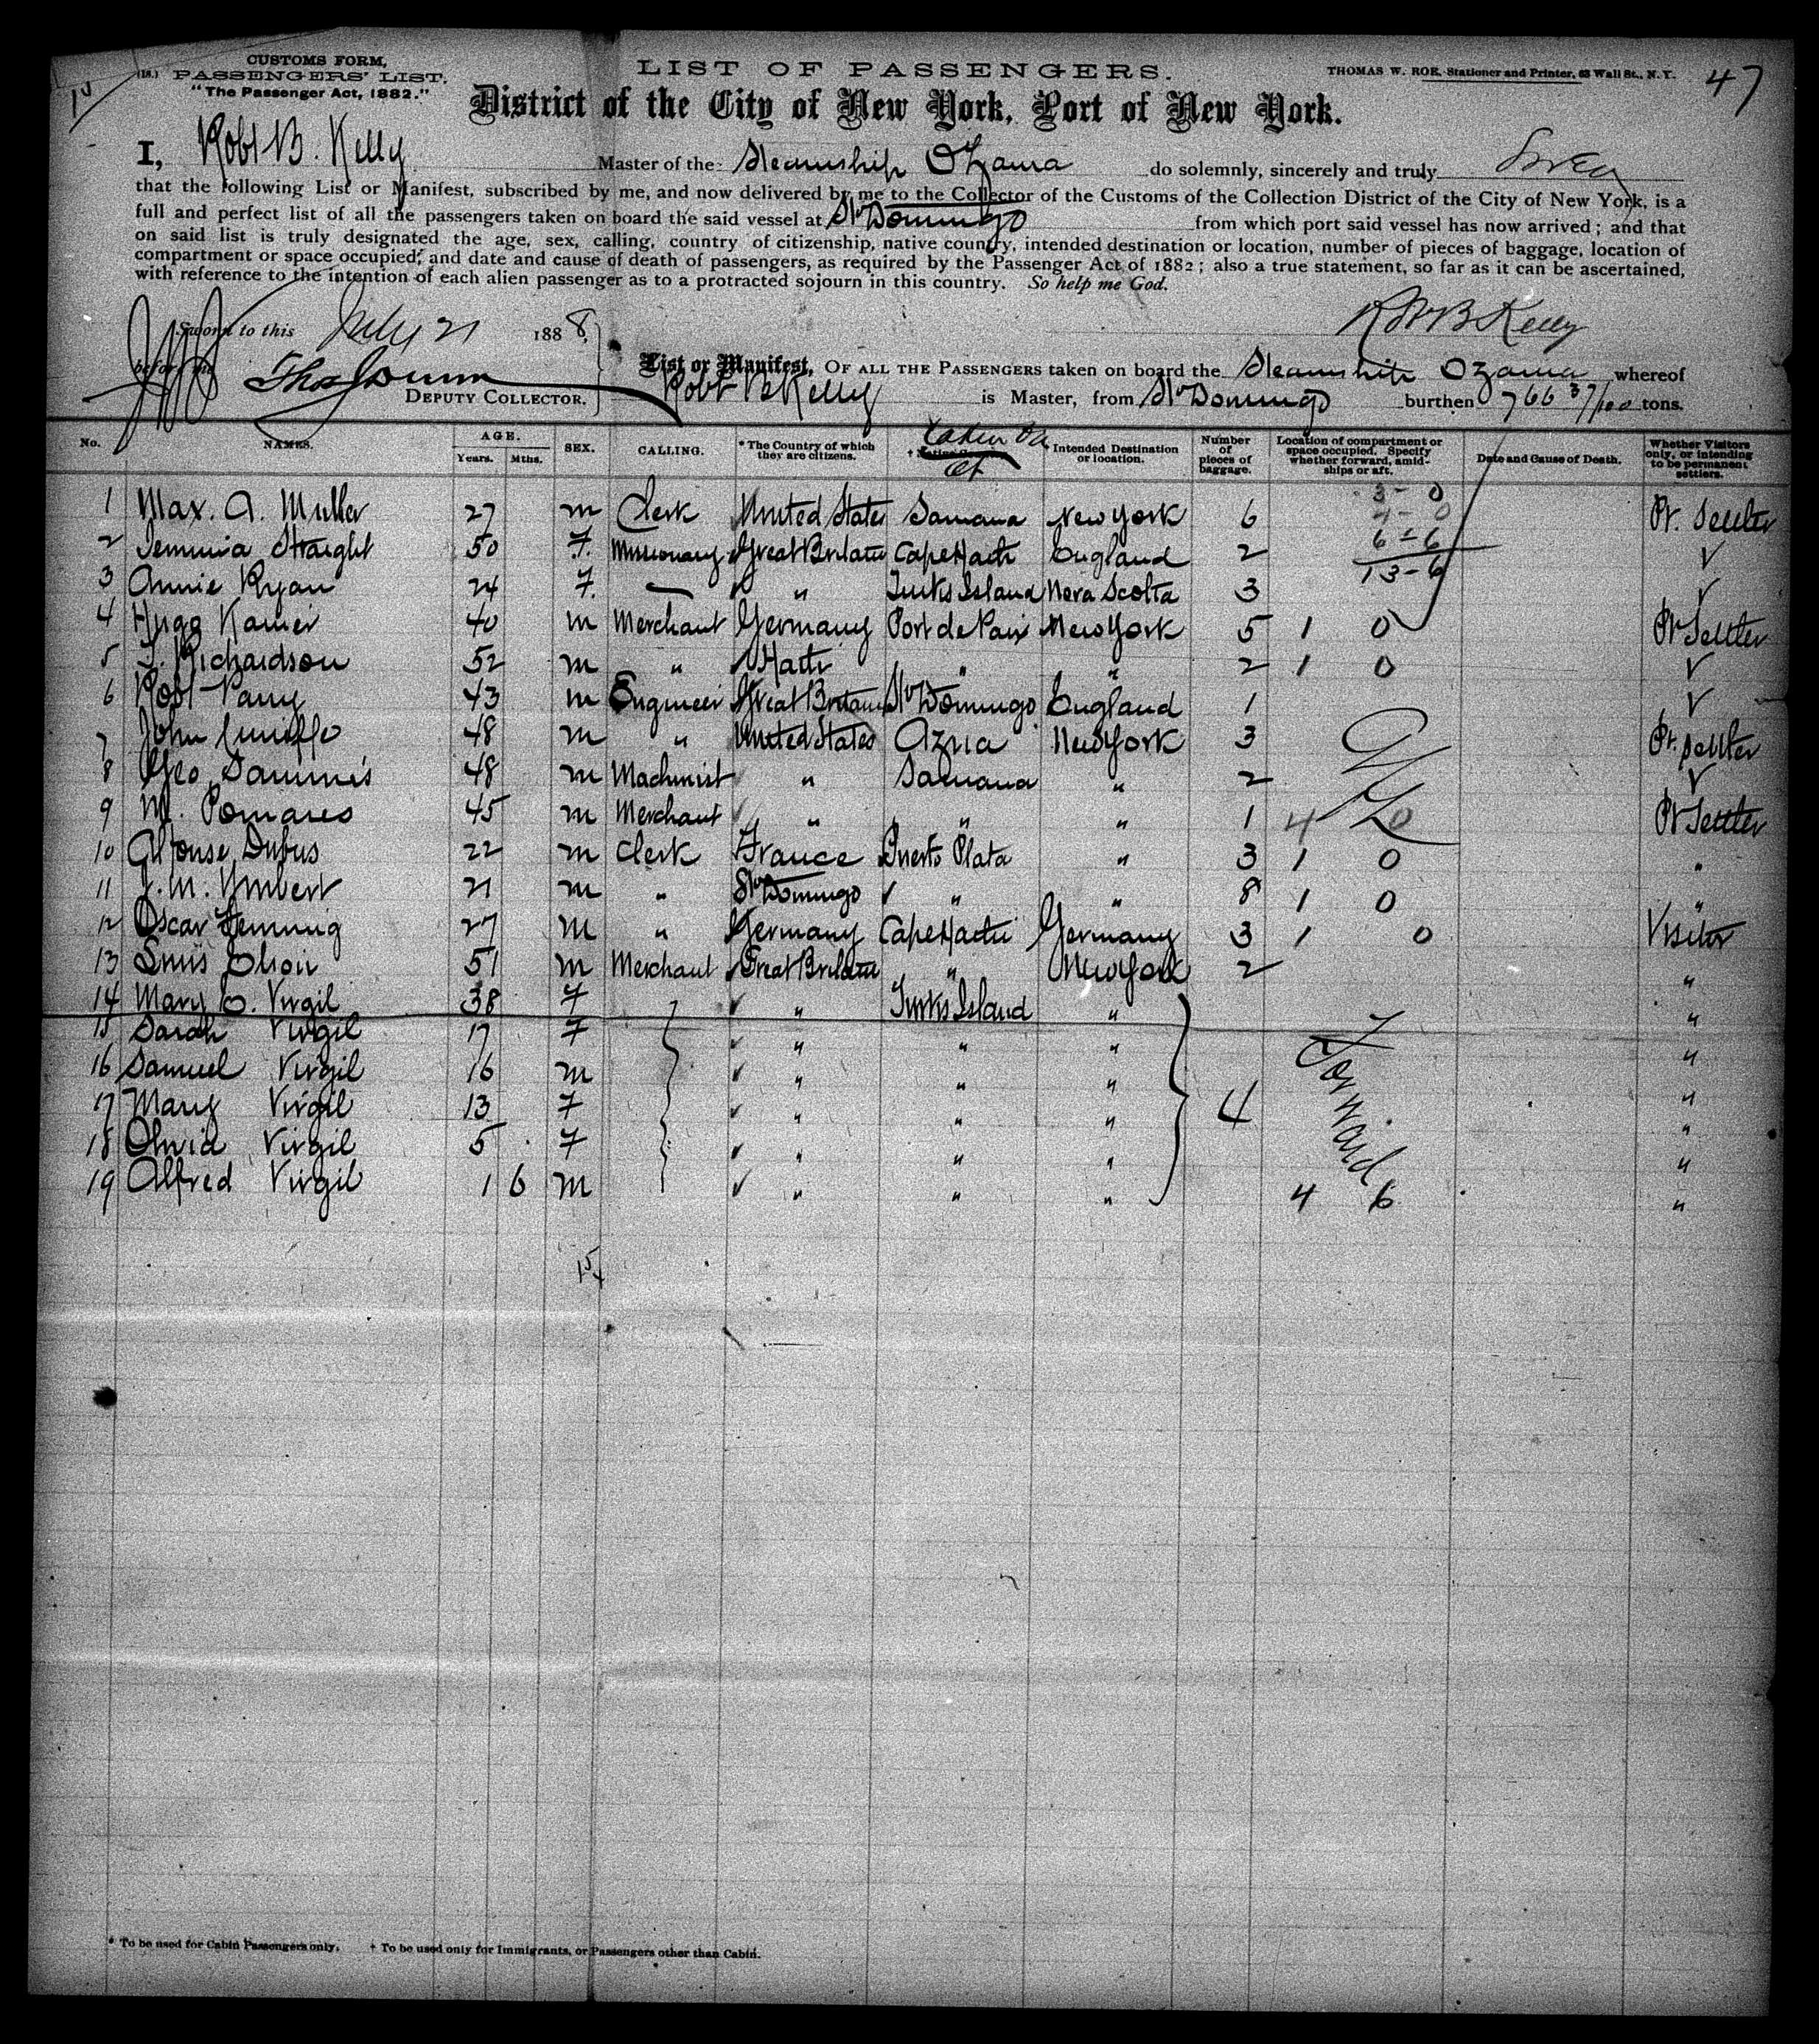 CUSTOMS FORM,
(18.) PASSENGERS' LIST.
"The Passenger Act, 1882."
LIST OF PASSENGERS.
THOMAS W. ROE, Stationer and Printer, 63 Wall St., N. Y.
47
District of the City of New York, Port of New York.
I, Robt B. Kelly Master of the Steamship Ozama do solemnly, sincerely and truly swear
that the following List or Manifest, subscribed by me, and now delivered by me to the Collector of the Customs of the Collection District of the City of New York, is a
full and perfect list of all the passengers taken on board the said vessel at Sto Domingo from which port said vessel has now arrived; and that
on said list is truly designated the age, sex, calling, country of citizenship, native country, intended destination or location, number of pieces of baggage, location of
compartment or space occupied, and date and cause of death of passengers, as required by the Passenger Act of 1882; also a true statement, so far as it can be ascertained,
with reference to the intention of each alien passenger as to a protracted sojourn in this country. So help me God.
Robt B Kelly
Sworn to this July 21 1888,
before me
DEPUTY COLLECTOR.
List or Manifest, OF ALL THE PASSENGERS taken on board the Steamship Ozama whereof
Robt B Kelly is Master, from Sto Domingo burthen 766 37/100 tons.
No. NAMES. AGE. Years. Mths. SEX. CALLING. * The Country of which they are citizens. † Native Country Taken on at Intended Destination or location. Number of pieces of baggage. Location of compartment or space occupied. Specify whether forward, amidships or aft. Date and Cause of Death. Whether Visitors only, or intending to be permanent settlers.
3 - 0
6 - 6
13 - 6
1 Max. A. Muller 27 m Clerk United States Samana New York 6 Pr. Settler
2 Jemima Straight 50 F. Missionary Great Britain Cape Hacti England 2 V
3 Annie Ryan 24 F. — " Turks Island Nova Scotia 3 V
4 Hugo Kainer 40 m Merchant Germany Port de Paix New York 5 1 0 Pr Settler
5 J. Richardson 52 m " Hacti " " 2 1 0 V
6 Robt Parry 43 m Engineer Great Britain Sto Domingo England 1 V
7 John 48 m " United States Azua New York 3 Pr. Settler
8 Geo Sammis 48 m Machinist " Samana " 2 V
9 M. Pomares 45 m Merchant " " " 1 4 0 Pr Settler
10 Alfonse Dubus 22 m Clerk France Puerto Plata " 3 1 0 "
11 J. M. Ymbert 21 m " Sto Domingo " " 8 1 0 "
12 Oscar Henning 27 m " Germany Cape Hacti Germany 3 1 0 Visitor
13 51 m Merchant Great Britain " New York 2 "
14 Mary E. Virgil 38 F " Turks Island " "
15 Sarah Virgil 17 F " " " "
16 Samuel Virgil 16 m " " " "
17 Mary Virgil 13 F " " " 4 Forward "
18 Virgil 5 F " " " "
19 Alfred Virgil 1 6 m " " " 4 6 "
* To be used for Cabin Passengers only. † To be used only for Immigrants, or Passengers other than Cabin.